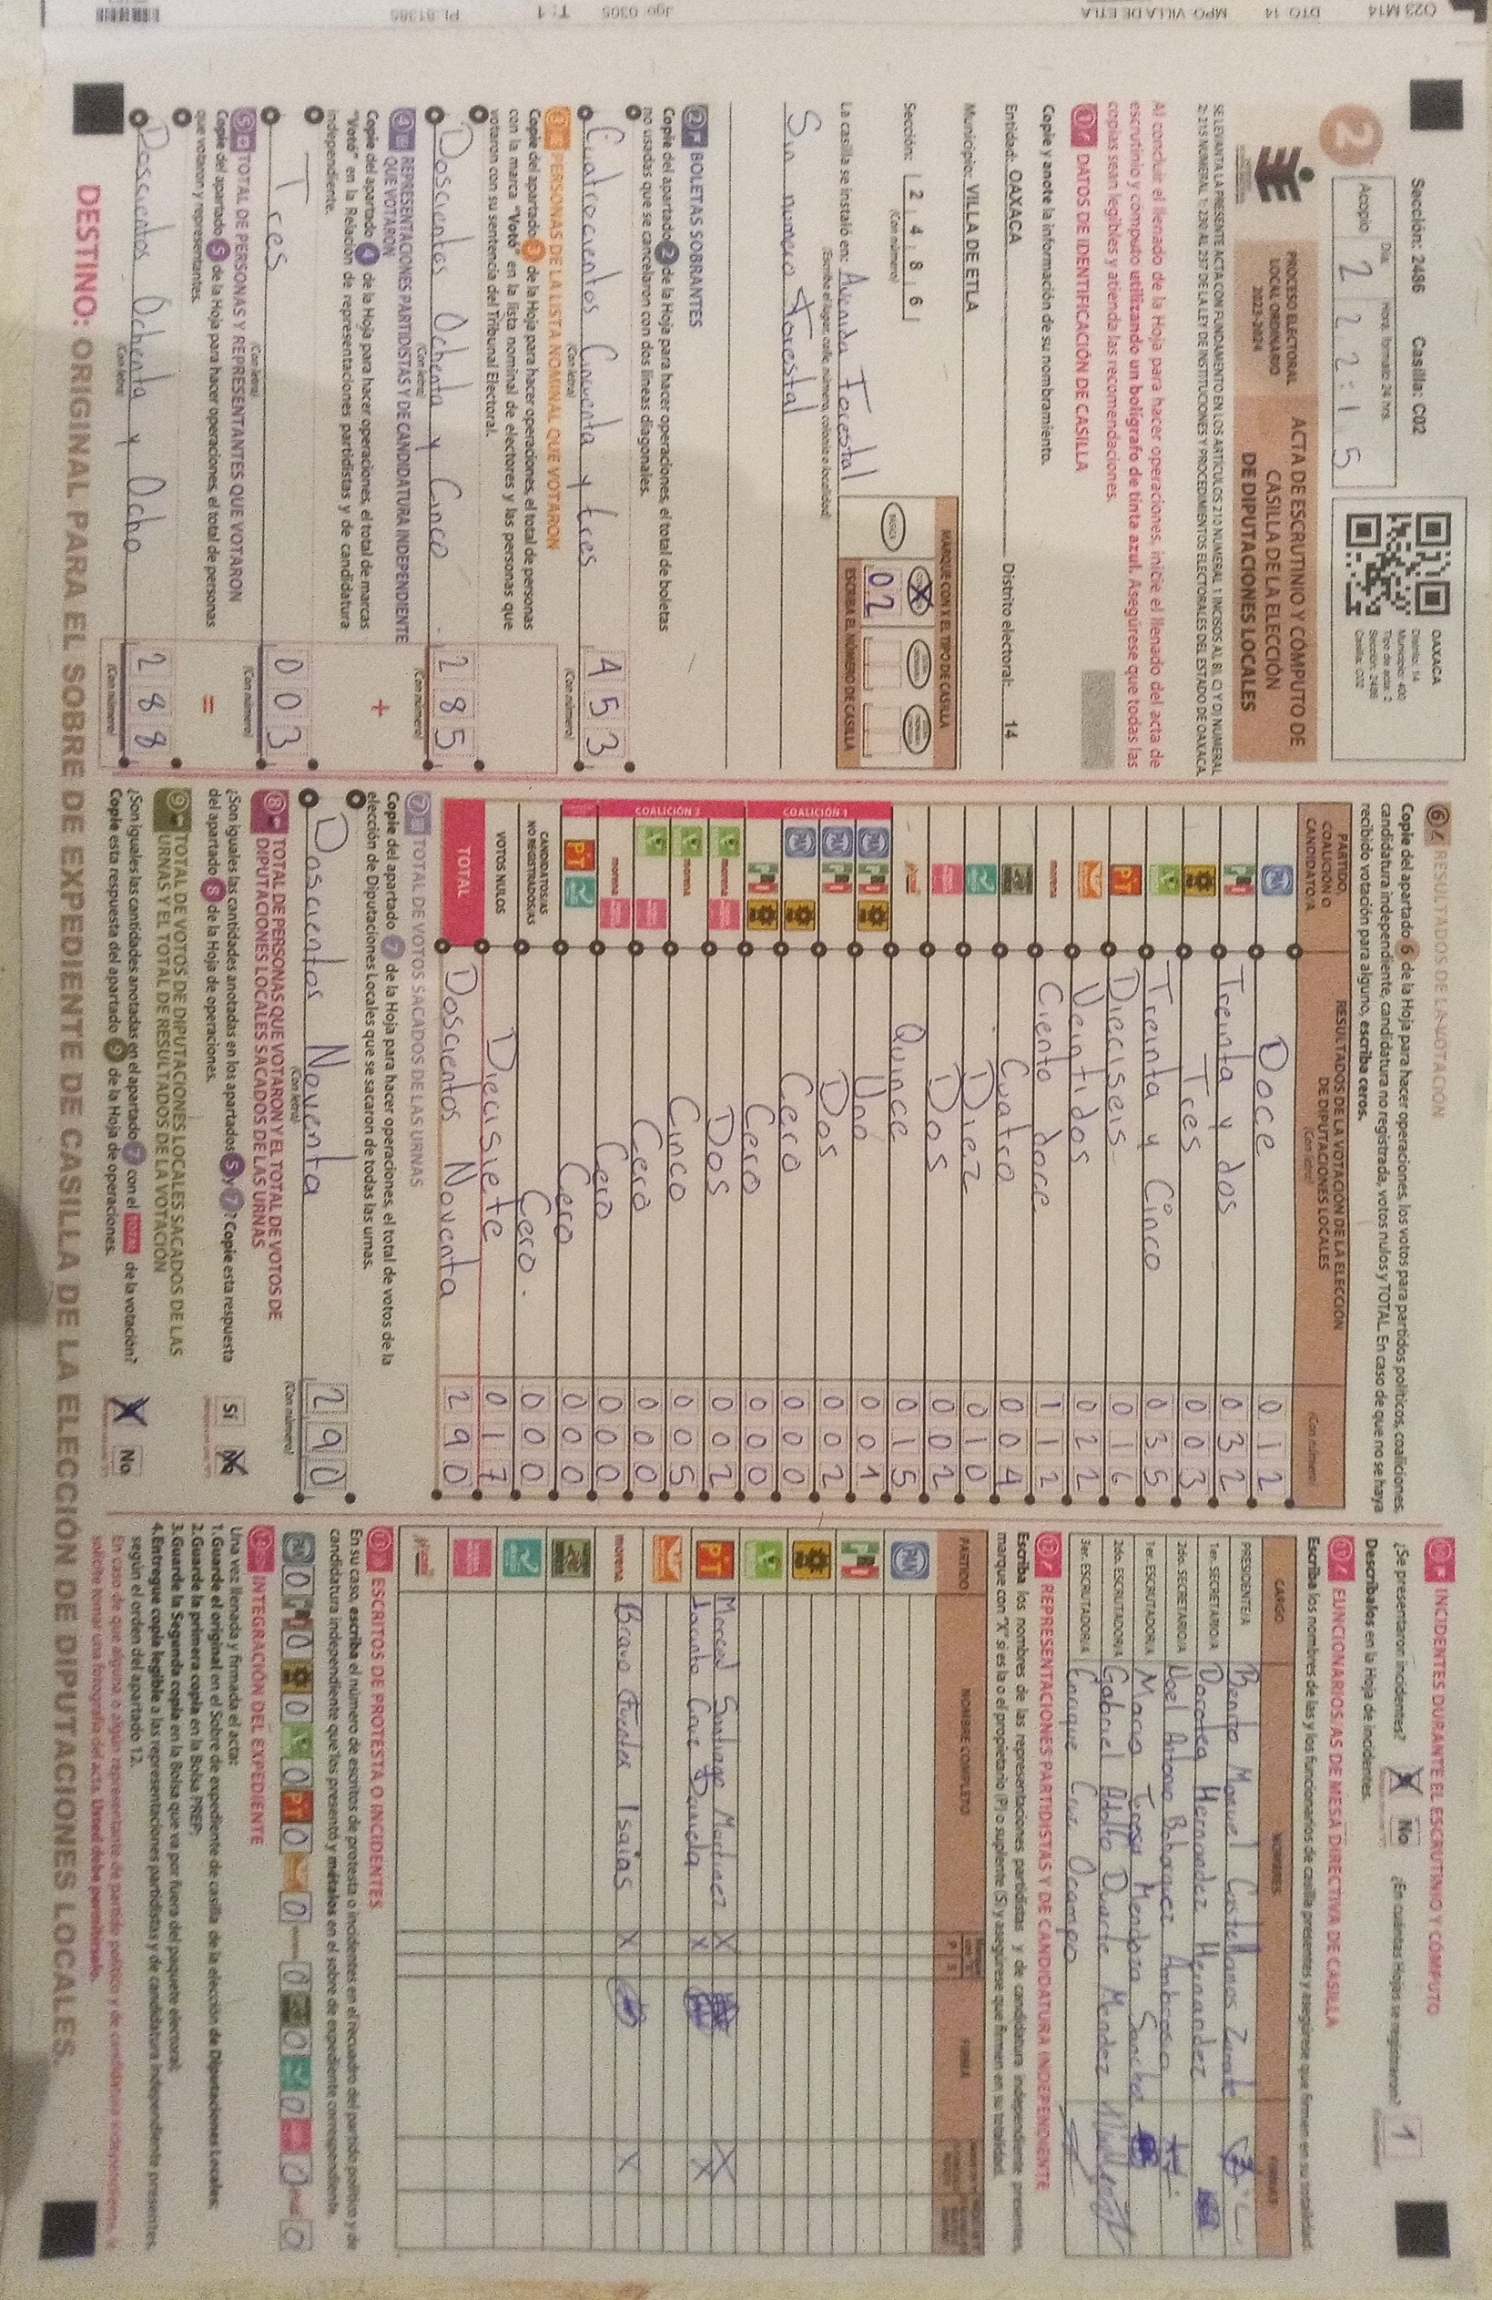 Sección: 2486 Casilla: C02
2
Día: Hora, formato 24 hrs.
Acopio 2 22:15
OAXACA
Distrito: 14
Municipio: 400
Tipo de acta: 2
Sección: 2486
Casilla: C02
PROCESO ELECTORAL
LOCAL ORDINARIO
2023-2024
ACTA DE ESCRUTINIO Y CÓMPUTO DE
CASILLA DE LA ELECCIÓN
DE DIPUTACIONES LOCALES
SE LEVANTA LA PRESENTE ACTA CON FUNDAMENTO EN LOS ARTÍCULOS 210 NUMERAL 1 INCISOS A), B), C) Y D) NUMERAL
2; 215 NUMERAL 1; 230 AL 237 DE LA LEY DE INSTITUCIONES Y PROCEDIMIENTOS ELECTORALES DEL ESTADO DE OAXACA.
Al concluir el llenado de la Hoja para hacer operaciones, inicie el llenado del acta de
escrutinio y cómputo utilizando un bolígrafo de tinta azul. Asegúrese que todas las
copias sean legibles y atienda las recomendaciones.
1 DATOS DE IDENTIFICACIÓN DE CASILLA
Copie y anote la información de su nombramiento.
Entidad: OAXACA Distrito electoral: 14
Municipio: VILLA DE ETLA
Sección: 2 4 8 6
(Con número)
MARQUE CON X EL TIPO DE CASILLA
BÁSICA
02
ESCRIBA EL NÚMERO DE CASILLA
La casilla se instaló en: Avenida Forestal
(Escriba el lugar, calle, número, colonia o localidad)
Sin numero Forestal
2 BOLETAS SOBRANTES
Copie del apartado 2 de la Hoja para hacer operaciones, el total de boletas
no usadas que se cancelaron con dos líneas diagonales.
Cuatrocientos Cincuenta y tres 453
(Con letra) (Con número)
3 PERSONAS DE LA LISTA NOMINAL QUE VOTARON
Copie del apartado 3 de la Hoja para hacer operaciones, el total de personas
con la marca "Votó" en la lista nominal de electores y las personas que
votaron con su sentencia del Tribunal Electoral.
Doscientos Ochenta y Cinco 285
(Con letra) (Con número)
4 REPRESENTACIONES PARTIDISTAS Y DE CANDIDATURA INDEPENDIENTE
QUE VOTARON
Copie del apartado 4 de la Hoja para hacer operaciones, el total de marcas
"Votó" en la Relación de representaciones partidistas y de candidatura
independiente.
+
Tres 003
(Con letra) (Con número)
5 TOTAL DE PERSONAS Y REPRESENTANTES QUE VOTARON
Copie del apartado 5 de la Hoja para hacer operaciones, el total de personas
que votaron y representantes.
=
Doscientos Ochenta y Ocho 288
(Con letra) (Con número)
6 RESULTADOS DE LA VOTACIÓN
Copie del apartado 6 de la Hoja para hacer operaciones, los votos para partidos políticos, coaliciones,
candidatura independiente, candidatura no registrada, votos nulos y TOTAL. En caso de que no se haya
recibido votación para alguno, escriba ceros.
PARTIDO,
COALICIÓN O
CANDIDATO/A
RESULTADOS DE LA VOTACIÓN DE LA ELECCIÓN
DE DIPUTACIONES LOCALES
(Con letra) (Con número)
PAN Doce 012
PRI Treinta y dos 032
Tres 003
Treinta y Cinco 035
PT Dieciseis 016
Veintidos 022
morena Ciento doce 112
Cuatro 004
Diez 010
Dos 002
Quince 015
COALICIÓN 1
PAN PRI Uno 001
PAN PRI Dos 002
PAN Cero 000
PRI Cero 000
COALICIÓN 2
morena Dos 002
morena Cinco 005
Cero 000
morena Cero 000
PT Cero 000
CANDIDATOS/AS
NO REGISTRADOS/AS Cero. 000
VOTOS NULOS Diecisiete 017
TOTAL Doscientos Noventa 290
7 TOTAL DE VOTOS SACADOS DE LAS URNAS
Copie del apartado 7 de la Hoja para hacer operaciones, el total de votos de la
elección de Diputaciones Locales que se sacaron de todas las urnas.
Doscientos Noventa 290
(Con letra) (Con número)
8 TOTAL DE PERSONAS QUE VOTARON Y EL TOTAL DE VOTOS DE
DIPUTACIONES LOCALES SACADOS DE LAS URNAS
¿Son iguales las cantidades anotadas en los apartados 5 y 7? Copie esta respuesta
del apartado 8 de la Hoja de operaciones.
Sí No
9 TOTAL DE VOTOS DE DIPUTACIONES LOCALES SACADOS DE LAS
URNAS Y EL TOTAL DE RESULTADOS DE LA VOTACIÓN
¿Son iguales las cantidades anotadas en el apartado 7 con el TOTAL de la votación?
Copie esta respuesta del apartado 9 de la Hoja de operaciones.
No
10 INCIDENTES DURANTE EL ESCRUTINIO Y CÓMPUTO
¿Se presentaron incidentes? No ¿En cuántas Hojas se registraron? 1
Descríbalos en la Hoja de incidentes.
11 FUNCIONARIOS/AS DE MESA DIRECTIVA DE CASILLA
Escriba los nombres de las y los funcionarios de casilla presentes y asegúrese que firmen en su totalidad.
CARGO NOMBRES FIRMAS
PRESIDENTE/A Benito Manuel Castellanos Zarate
1er. SECRETARIO/A Dorotea Hernandez Hernandez
2do. SECRETARIO/A Noel Antonio Bohorquez Ambrosio
1er. ESCRUTADOR/A Maria Teresa Mendoza Sanchez
2do. ESCRUTADOR/A Gabriel Adolfo Duarte Mendez
3er. ESCRUTADOR/A Enrique Cruz Ocampo
12 REPRESENTACIONES PARTIDISTAS Y DE CANDIDATURA INDEPENDIENTE
Escriba los nombres de las representaciones partidistas y de candidatura independiente presentes,
marque con "X" si es la o el propietario (P) o suplente (S) y asegúrese que firmen en su totalidad.
PARTIDO NOMBRE COMPLETO P S FIRMA
PAN
PRI
PT Marcial Santiago Martinez X X
Jacinto Cruz Daniela X X
morena Bravo Fuentes Isaias X X
13 ESCRITOS DE PROTESTA O INCIDENTES
En su caso, escriba el número de escritos de protesta o incidentes en el recuadro del partido político y de
candidatura independiente que los presentó y métalos en el sobre de expediente correspondiente.
PAN 0 PRI 0 0 0 PT 0 0 morena 0 0 0 0 0
14 INTEGRACIÓN DEL EXPEDIENTE
Una vez llenada y firmada el acta:
1.Guarde el original en el Sobre de expediente de casilla de la elección de Diputaciones Locales;
2.Guarde la primera copia en la Bolsa PREP;
3.Guarde la Segunda copia en la Bolsa que va por fuera del paquete electoral;
4.Entregue copia legible a las representaciones partidistas y de candidatura independiente presentes,
según el orden del apartado 12.
En caso de que alguna o algún representante de partido político y de candidatura independiente, le
solicite tomar una fotografía del acta, Usted debe permitírselo.
DESTINO: ORIGINAL PARA EL SOBRE DE EXPEDIENTE DE CASILLA DE LA ELECCIÓN DE DIPUTACIONES LOCALES.
023 M14 DTO 14 MPO VILLA DE ETLA Jgo: 0305 T: 1 PL:81385